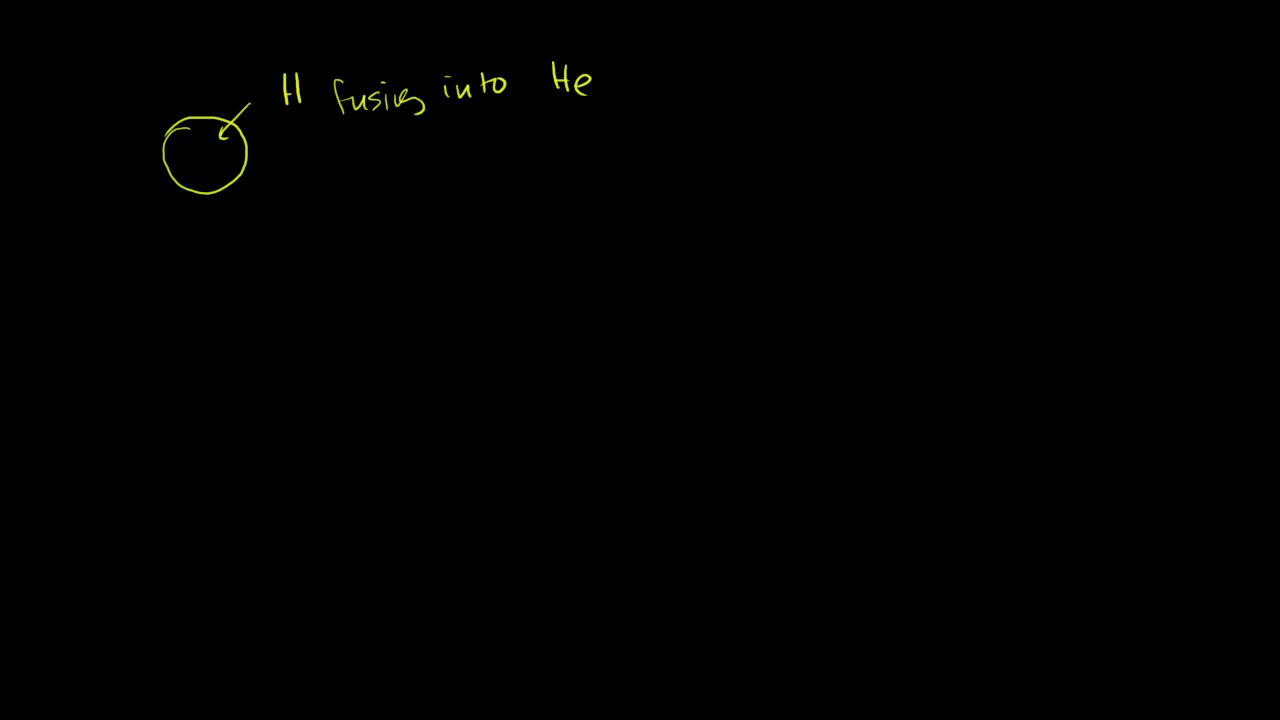 H fusing into He